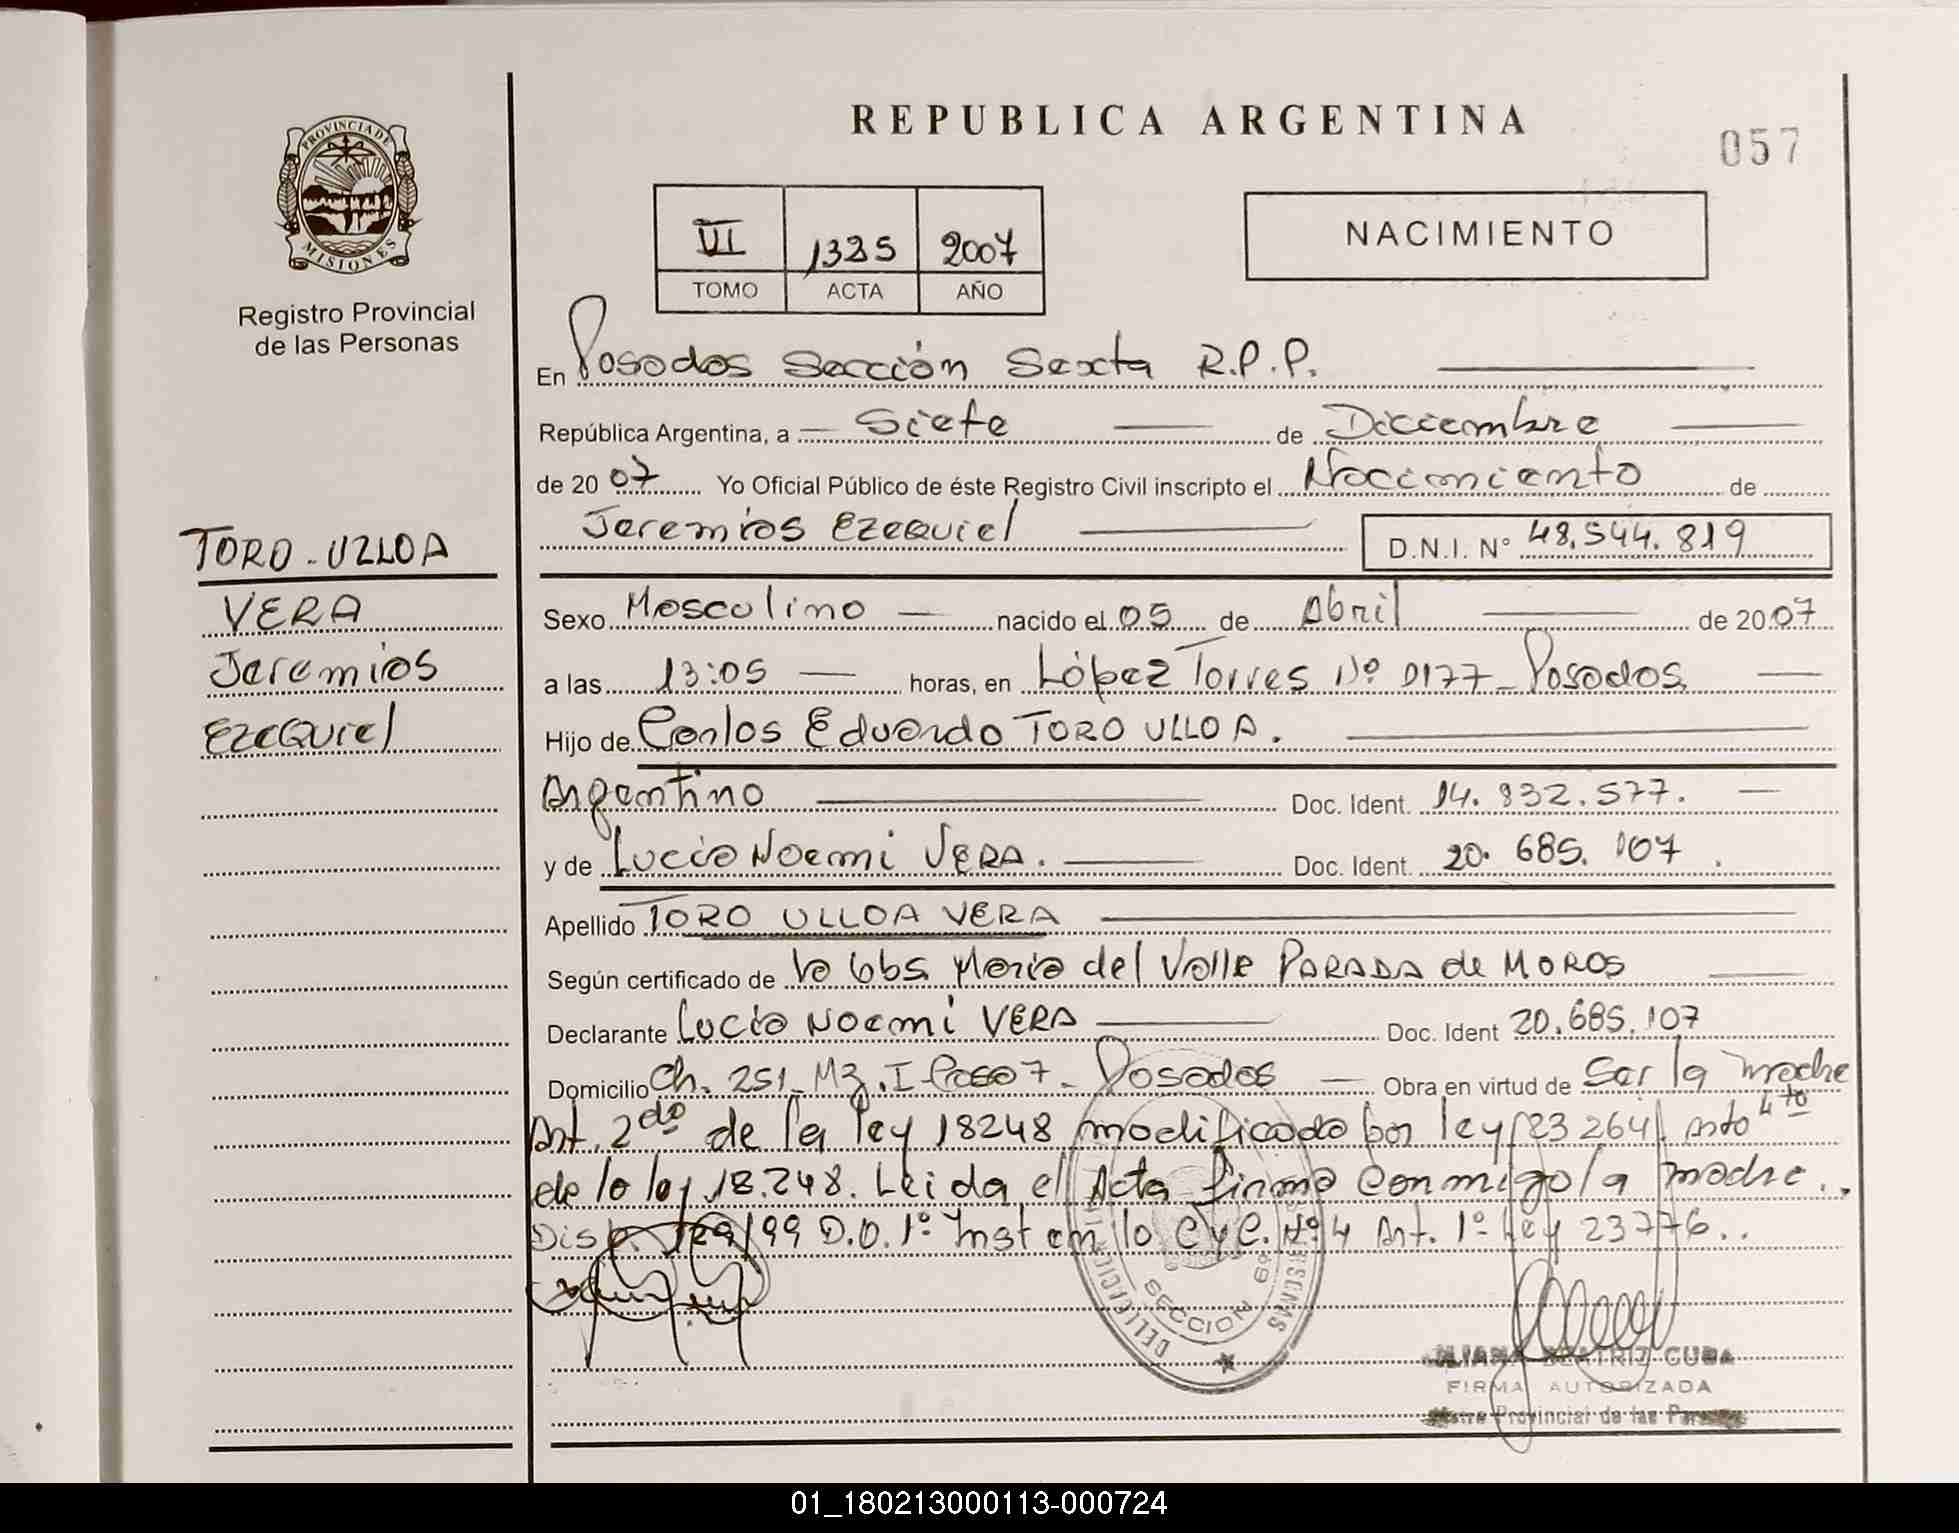 REPUBLICA ARGENTINA
057
PROVINCIA DE
MISIONES
Registro Provincial
de las Personas
VI 1335 2007
TOMO ACTA AÑO
NACIMIENTO
En Posadas Sección Sexta R.P.P.
República Argentina, a Siete de Diciembre
de 2007 Yo Oficial Público de éste Registro Civil inscripto el Nacimiento de
Jeremias Ezequiel D.N.I. N° 48.544.819
TORO-ULLOA
VERA
Jeremias
Ezequiel
Sexo Masculino nacido el 05 de Abril de 2007
a las 13:05 horas, en López Torres Nº 0177 - Posadas
Hijo de Carlos Eduardo TORO ULLOA.
Argentino Doc. Ident. 14.932.577.
y de Lucia Noemi VERA. Doc. Ident. 20.685.107.
Apellido TORO ULLOA VERA
Según certificado de la Obs. Maria del Valle PARADA de MOROS
Declarante Lucia Noemi VERA Doc. Ident 20.685.107
Domicilio Ch. 251 - Mz. I Casa 7 - Posadas Obra en virtud de Ser la madre
Art. 2do de la ley 18248 modificado por ley 23264 Arto 4to
de la ley 18.248. Leida el Acta firma conmigo la madre..
Disp. 129/99 D.O. 1º Inst en lo C y C. Nº 4 Art. 1º Ley 23776..
SECCION 6º
BEATRIZ CUBA
FIRMA AUTORIZADA
Provincial de las Personas
01_180213000113-000724